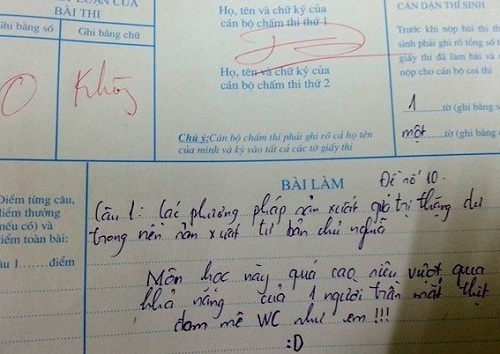 LUẬN CỦA
BÀI THI
Ghi bằng số
Ghi bằng chữ
0
Không
Họ, tên và chữ ký của
cán bộ chấm thi thứ 1
Họ, tên và chữ ký của
cán bộ chấm thi thứ 2
Chú ý: Cán bộ chấm thi phải ghi rõ cả họ tên
của mình và ký vào tất cả các tờ giấy thi
CĂN DẶN THÍ SINH
Trước khi nộp bài thi th
sinh phải ghi rõ tổng số t
giấy thi đã làm bài và
nộp cho cán bộ coi thi
1 tờ (ghi bằng
một tờ (ghi bằng
Điểm từng câu,
điểm thưởng
(nếu có) và
điểm toàn bài:
âu 1.......điểm
BÀI LÀM
Đề số 10.
Câu 1: Các phương pháp sản xuất giá trị thặng dư
trong nền sản xuất tư bản chủ nghĩa
Môn học này quá cao siêu vượt qua
khả năng của 1 người trần mắt thịt
đam mê WC như em !!!
:D